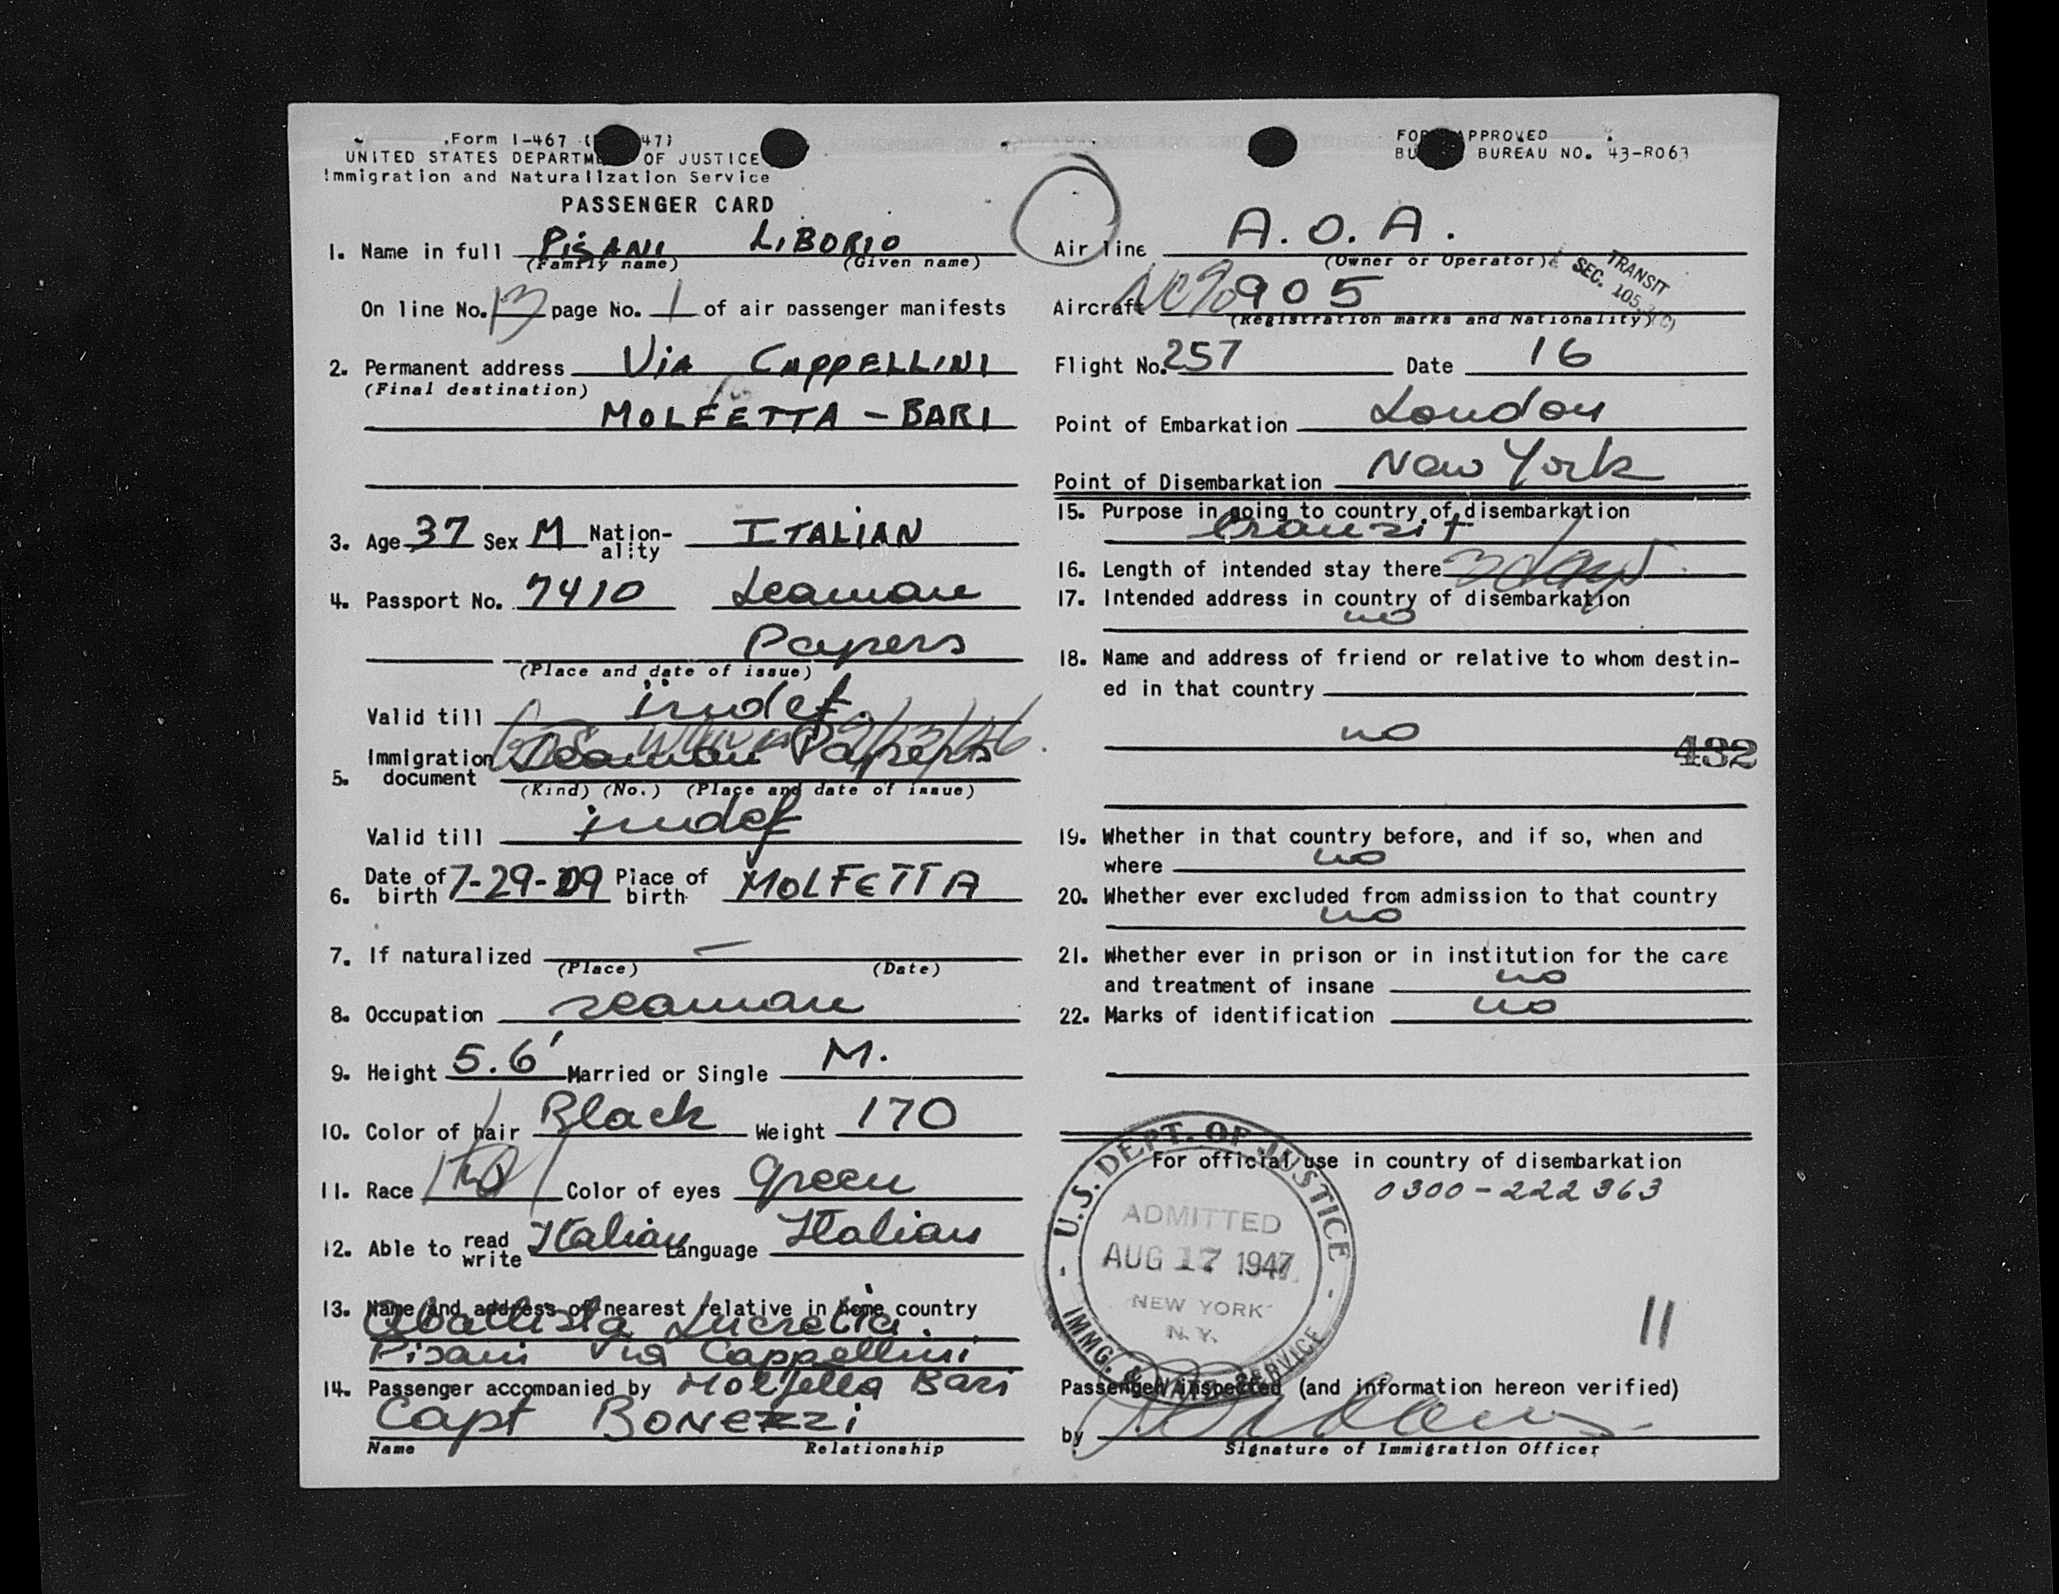 Form I-467 ( 47)
UNITED STATES DEPARTM OF JUSTICE
Immigration and Naturalization Service
PASSENGER CARD
1. Name in full PISANI LIBORIO
(Family name) (Given name)
On line No. 13 page No. 1 of air passenger manifests
2. Permanent address VIA CAPPELLINI
(Final destination)
MOLFETTA - BARI
3. Age 37 Sex M Nation-ality ITALIAN
4. Passport No. 7410 Seaman
Papers
(Place and date of issue)
Valid till indef.
5. Immigration document Seaman Papers
(Kind) (No.) (Place and date of issue)
Valid till indef
6. Date of birth 7-29-09 Place of birth MOLFETTA
7. If naturalized —
(Place) (Date)
8. Occupation seaman
9. Height 5.6' Married or Single M.
10. Color of hair Black Weight 170
11. Race Color of eyes green
12. Able to read write Italian Language Italian
13. Name and address of nearest relative in home country
Abattista Lucrezia
Pisani Via Cappellini
14. Passenger accompanied by Molfetta Bari
Capt BONEZZI
Name Relationship
FOR APPROVED
BU BUREAU NO. 43-R063
Air line A.O.A.
(Owner or Operator)
TRANSIT
SEC. 105.3(C)
Aircraft NC90905
(Registration marks and Nationality)
Flight No. 257 Date 16
Point of Embarkation London
Point of Disembarkation New York
15. Purpose in going to country of disembarkation
transit
16. Length of intended stay there 2 days
17. Intended address in country of disembarkation
no
18. Name and address of friend or relative to whom destin-
ed in that country
no
432
19. Whether in that country before, and if so, when and
where no
20. Whether ever excluded from admission to that country
no
21. Whether ever in prison or in institution for the care
and treatment of insane no
22. Marks of identification no
For official use in country of disembarkation
0300-222363
U.S. DEPT. OF JUSTICE
ADMITTED
AUG 17 1947
NEW YORK
N.Y.
IMMG. & NATZ. SERVICE
11
Passenger inspected (and information hereon verified)
by
Signature of Immigration Officer